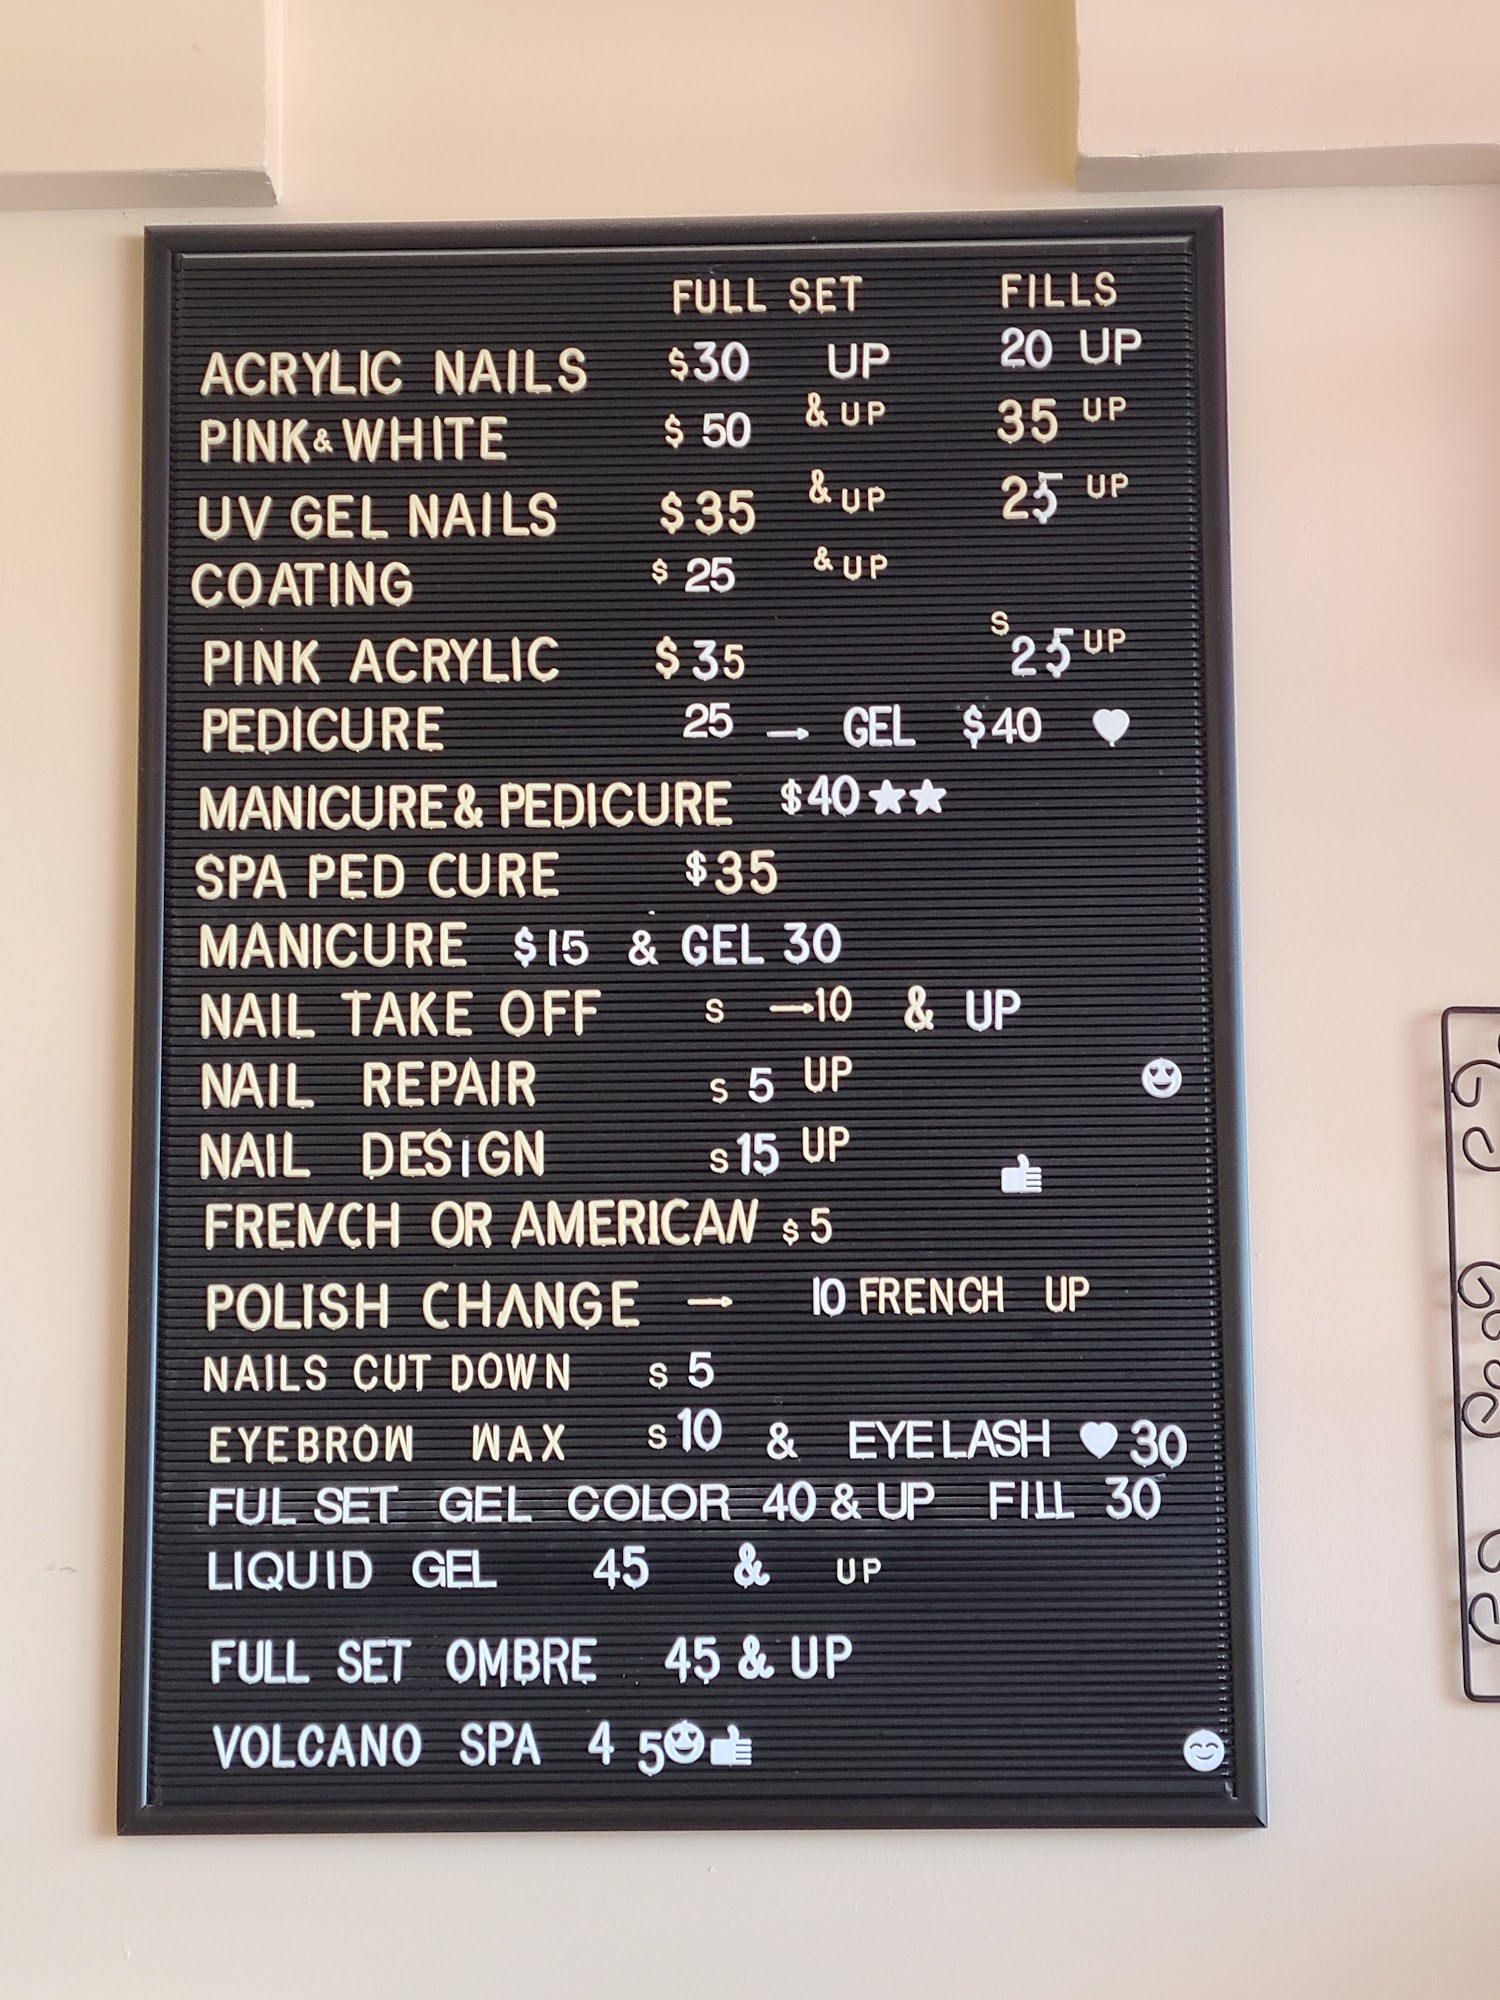 FULL SET FILLS
ACRYLIC NAILS $30 UP 20 UP
PINK & WHITE $ 50 & UP 35 UP
UV GEL NAILS $35 & UP 25 UP
COATING $ 25 & UP
PINK ACRYLIC $35 S 25 UP
PEDICURE 25 → GEL $40 ♥
MANICURE & PEDICURE $40 ★★
SPA PED CURE $35
MANICURE $15 & GEL 30
NAIL TAKE OFF S →10 & UP
NAIL REPAIR S 5 UP 😍
NAIL DESiGN S 15 UP 👍
FRENCH OR AMERICAN $ 5
POLISH CHANGE → 10 FRENCH UP
NAILS CUT DOWN S 5
EYEBROW WAX S 10 & EYELASH ♥ 30
FUL SET GEL COLOR 40 & UP FILL 30
LIQUID GEL 45 & UP
FULL SET OMBRE 45 & UP
VOLCANO SPA 4 5 😍👍 😊